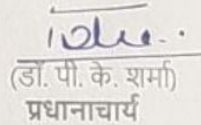 (डॉ. पी. के. शर्मा)
प्रधानाचार्य